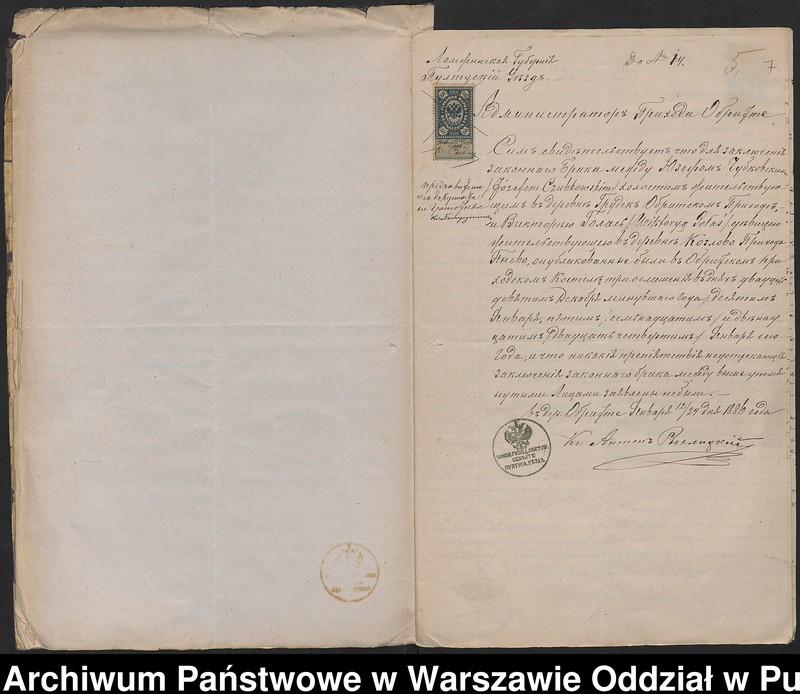 Ломжинская Губернія
Пултускій Уѣздъ.
До № 14.
5
7
Администраторъ Прихода Обрытте
Симъ свидѣтельствуетъ что для заключенія
законнаго Брака между Юзефомъ Чубковским
/Józefem Czubkowskim/ холостымъ жительствую-
щимъ въ деревнѣ Грудкъ Обритскомъ Приходѣ,
и Викторьею Голасъ /Wiktorya Gołaś/ дѣвицею
жительствующею въ деревнѣ Козлово Прихода
Гнево, опубликованные были въ Обритском при-
ходскомъ Костелѣ три оглашенія въ дняхъ двадцать
девятымъ Декабря минувшаго года /десятымъ
Января, пятымъ /семьнадцатымъ/ и двѣнад-
цатымъ /двадцать четвертымъ/ Января сего
Года, и что никакія препятствія недопускающія
заключенія законнаго брака между выше упомя-
нутыми Лицами заявлены не были. –
въ дер. Обрытте Января 12/24 дня 1886 года
Кс. Антонъ
ПУЛТУСК. УѢЗДА
Archiwum Państwowe w Warszawie Oddział w Pu